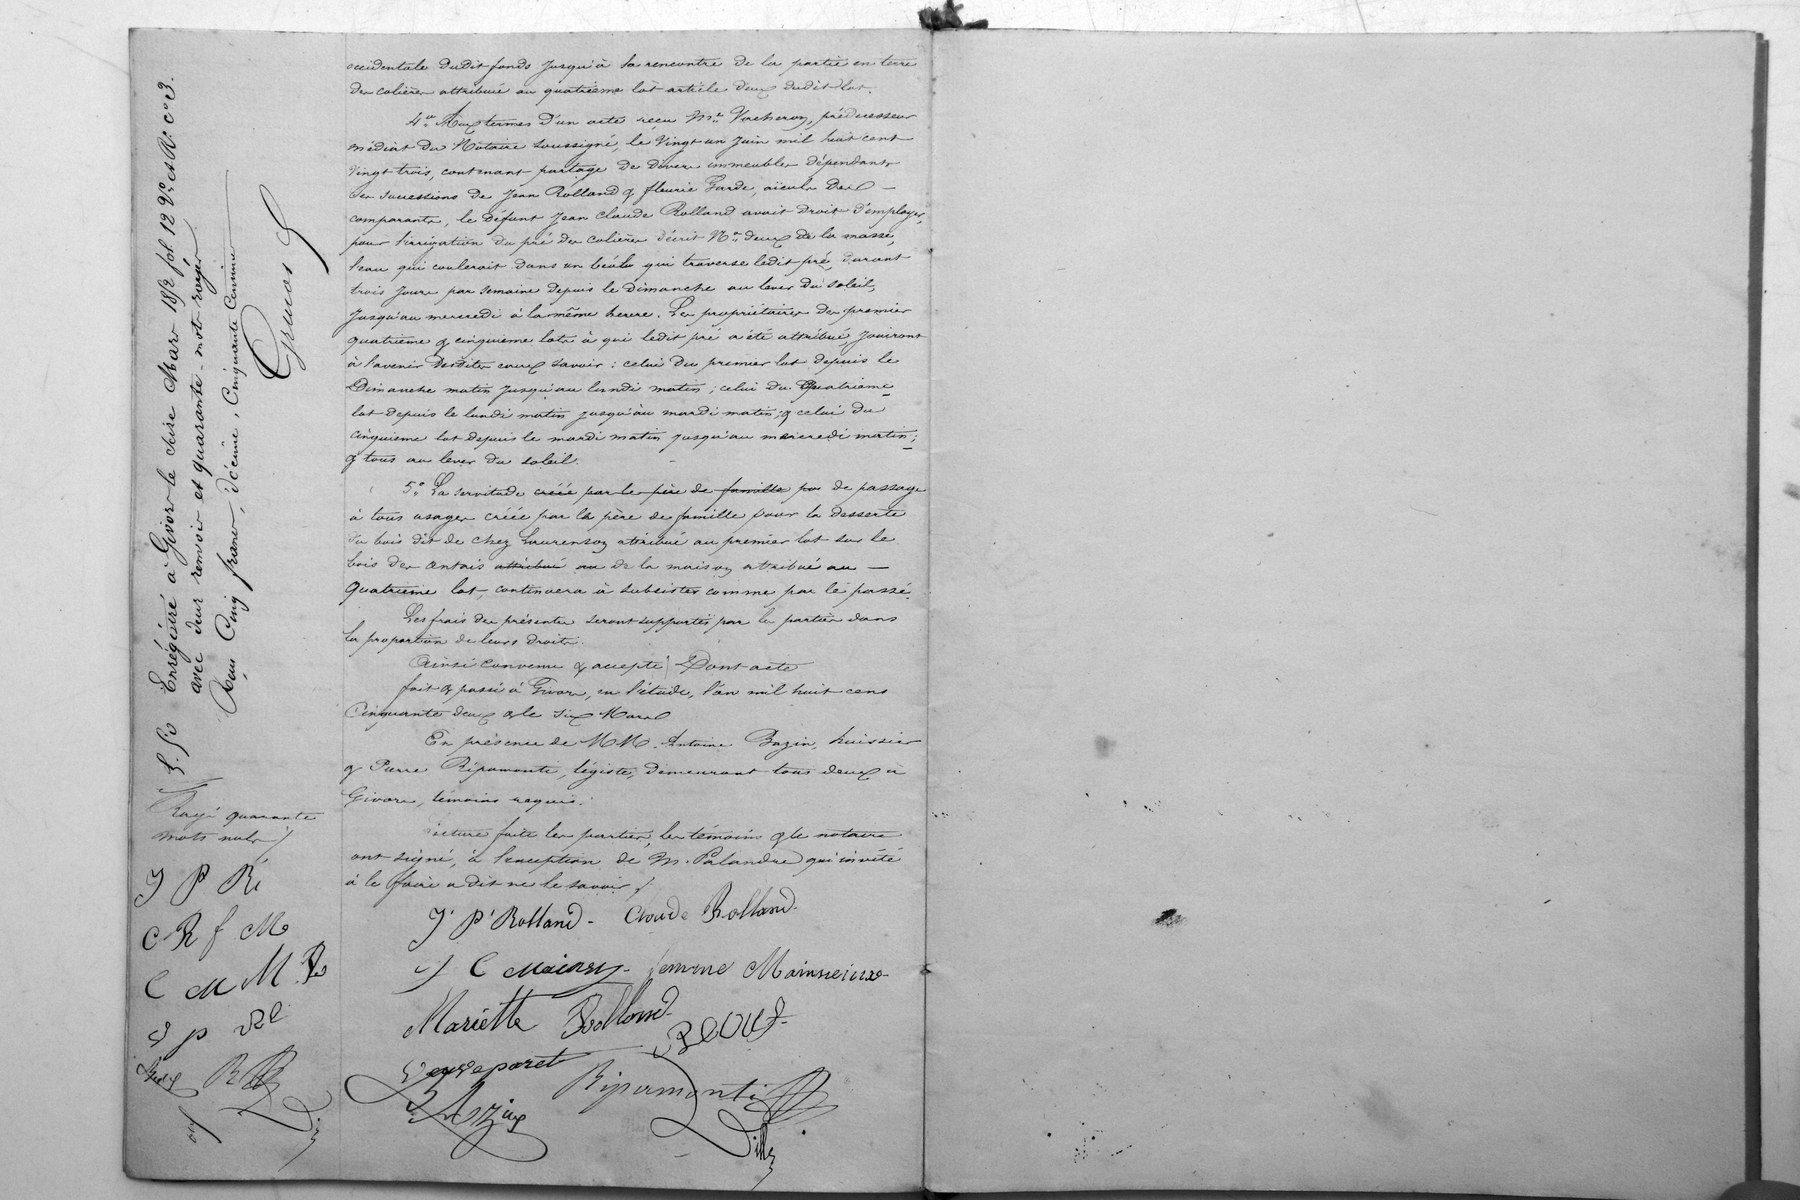 occidentale dudit fonds jusqu'à la rencontre de la partie en terre
des colières attribuée au quatrième lot article deux dudit lot.
4° Aux termes d'un acte reçu Me Vacheron, prédécesseur
médiat du Notaire soussigné, le Vingt un Juin mil huit cent
Vingt trois, contenant partage de divers immeubles dépendants
des successions de Jean Rolland & fleurie Garde, aïeuls des
comparants, le défunt Jean Claude Rolland avait droit d'employer,
pour l'irrigation du pré des colières décrit N° deux de la masse,
l'eau qui coulerait dans un béalu qui traverse ledit pré, durant
trois jours par semaine depuis le Dimanche au lever du soleil,
jusqu'au mercredi à la même heure. Les propriétaires des premier
quatrième & cinquième lots à qui ledit pré a été attribué, jouiront
à l'avenir desdites eaux savoir : celui du premier lot depuis le
Dimanche matin jusqu'au lundi matin ; celui du Quatrième
lot depuis le lundi matin jusqu'au mardi matin ; & celui du
cinquième lot depuis le mardi matin jusqu'au mercredi matin ;
& tous au lever du soleil.
5° La servitude créée par le père de famille par de passage
à tous usages créée par le père de famille pour la desserte
du bois dit de chez Laurenson attribué au premier lot sur le
bois des antais attribué au de la maison attribué au —
Quatrième lot, continuera à subsister comme par le passé.
Les frais des présentes seront supportés par les parties dans
la proportion de leurs droits.
Ainsi convenu & accepté / Dont acte
fait & passé à Givors, en l'étude, l'an mil huit cent
Cinquante deux & le six Mars
En présence de MM. Antoine Bazin, huissier
& Pierre Ripamonti, légiste, demeurant tous deux à
Givors, témoins requis.
Lecture faite les parties, les témoins & le notaire
ont signé, à l'exception de M. Palandre qui invité
à le faire a dit ne le savoir /
J. P. Rolland - Claude Rolland
femme Mainssieux
Mariette Rolland
Ripamonti
Bazin
Enrégistré à Givors le seize Mars 1852 fol. 12 V° et R° c. 3.
avec deux renvois et quarante-mots rayés.
Reçu Cinq francs, décime, Cinquante Centimes
Rayé quarante
mots nuls /
J P R
C R f M
C M M R